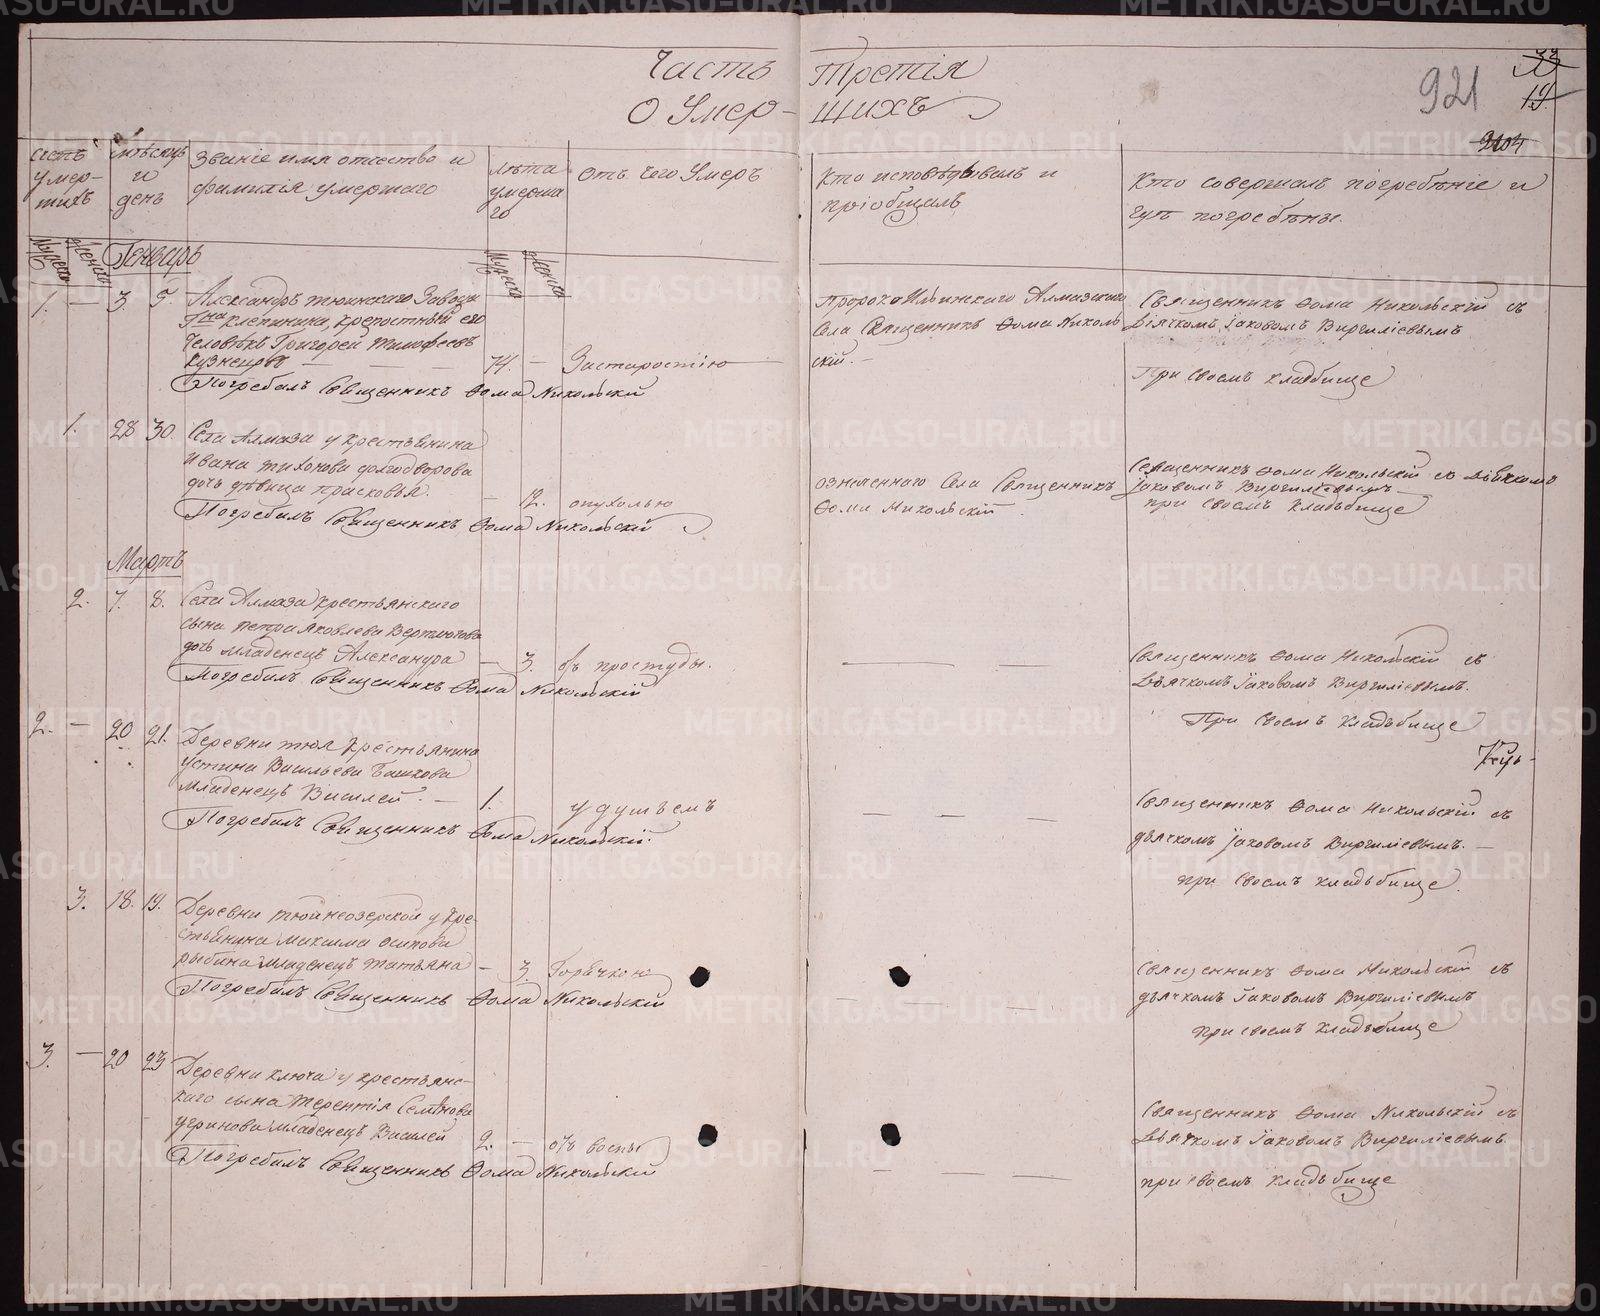 Часть Третія
О Умер- шихъ
921
33
19
2104
счетъ умер- шихъ
мѣсяцъ и день
Званіе имя отчество и фамилія умершаго
лѣта умерша го
отъ чего Умеръ
Кто исповѣдывалъ и пріобщалъ
Кто совершалъ погребѣніе и гдѣ погребѣны.
Мужска
женска
Генварь
Мужска
женска
1. — 3. 5.
Александръ тюинскаго Завода
Гна клепинина, крѣпостный его
Человѣкъ Григорей Тимофеевъ
Кузнецовъ — — —
74. — Застаростію
Погребалъ Священникъ Ѳома Никольскій
Пророко Ильинскаго Алмазскаго
Села Священникъ Ѳома Николь
скій. —
Священникъ Ѳома Никольскій съ
Дьячкомъ Іаковомъ Виргиліевымъ
При своемъ кладбище
1. 28 30.
Села Алмаза у крестьянина
Ивана тихонова долгодворова
дочь дѣвица прасковья.
— 12. опухолью
Погребалъ Священникъ Ѳома Никольскій
означеннаго Села Священникъ
Ѳома Никольскій
Священникъ Ѳома Никольскій съ дьячкомъ
Іаковомъ Виргиліевымъ
при своемъ кладьбище
Мартъ
2. 7. 8.
Села Алмаза крестьянскаго
сына петра яковлева Вертлюгова
дочь младенецъ Александра
— 3. отъ простуды.
Погребалъ Священникъ Ѳома Никольскій
Священникъ Ѳома Никольскій съ
Дьячкомъ Іаковомъ Виргиліевымъ.
При своемъ кладьбище
2. — 20 21.
Деревни тюя крестьянина
устина Васильева Башкова
младенецъ Василей. —
1. удушьемъ
Погребалъ Священникъ Ѳома Никольскій.
Священникъ Ѳома Никольскій съ
дьячкомъ Іаковомъ Виргиліевымъ. —
при своемъ кладьбище.
3. 18. 19.
Деревни тюйнеозерской у кре-
стьянина максима осипова
рыбина младенецъ татьяна
— 3. Горячкою
Погребалъ Священникъ Ѳома Никольскій
Священникъ Ѳома Никольскій съ
дьячкомъ Іаковомъ Виргиліевымъ
при своемъ кладьбище
3. — 20 23
Деревни ключа у крестьянс-
каго сына терентія Семенова
младенецъ Василей
2. — отъ воспы
Погребалъ Священникъ Ѳома Никольскій
Священникъ Ѳома Никольскій съ
Дьячкомъ Іаковомъ Виргиліевымъ.
при своемъ кладьбище
METRIKI.GASO-URAL.RU